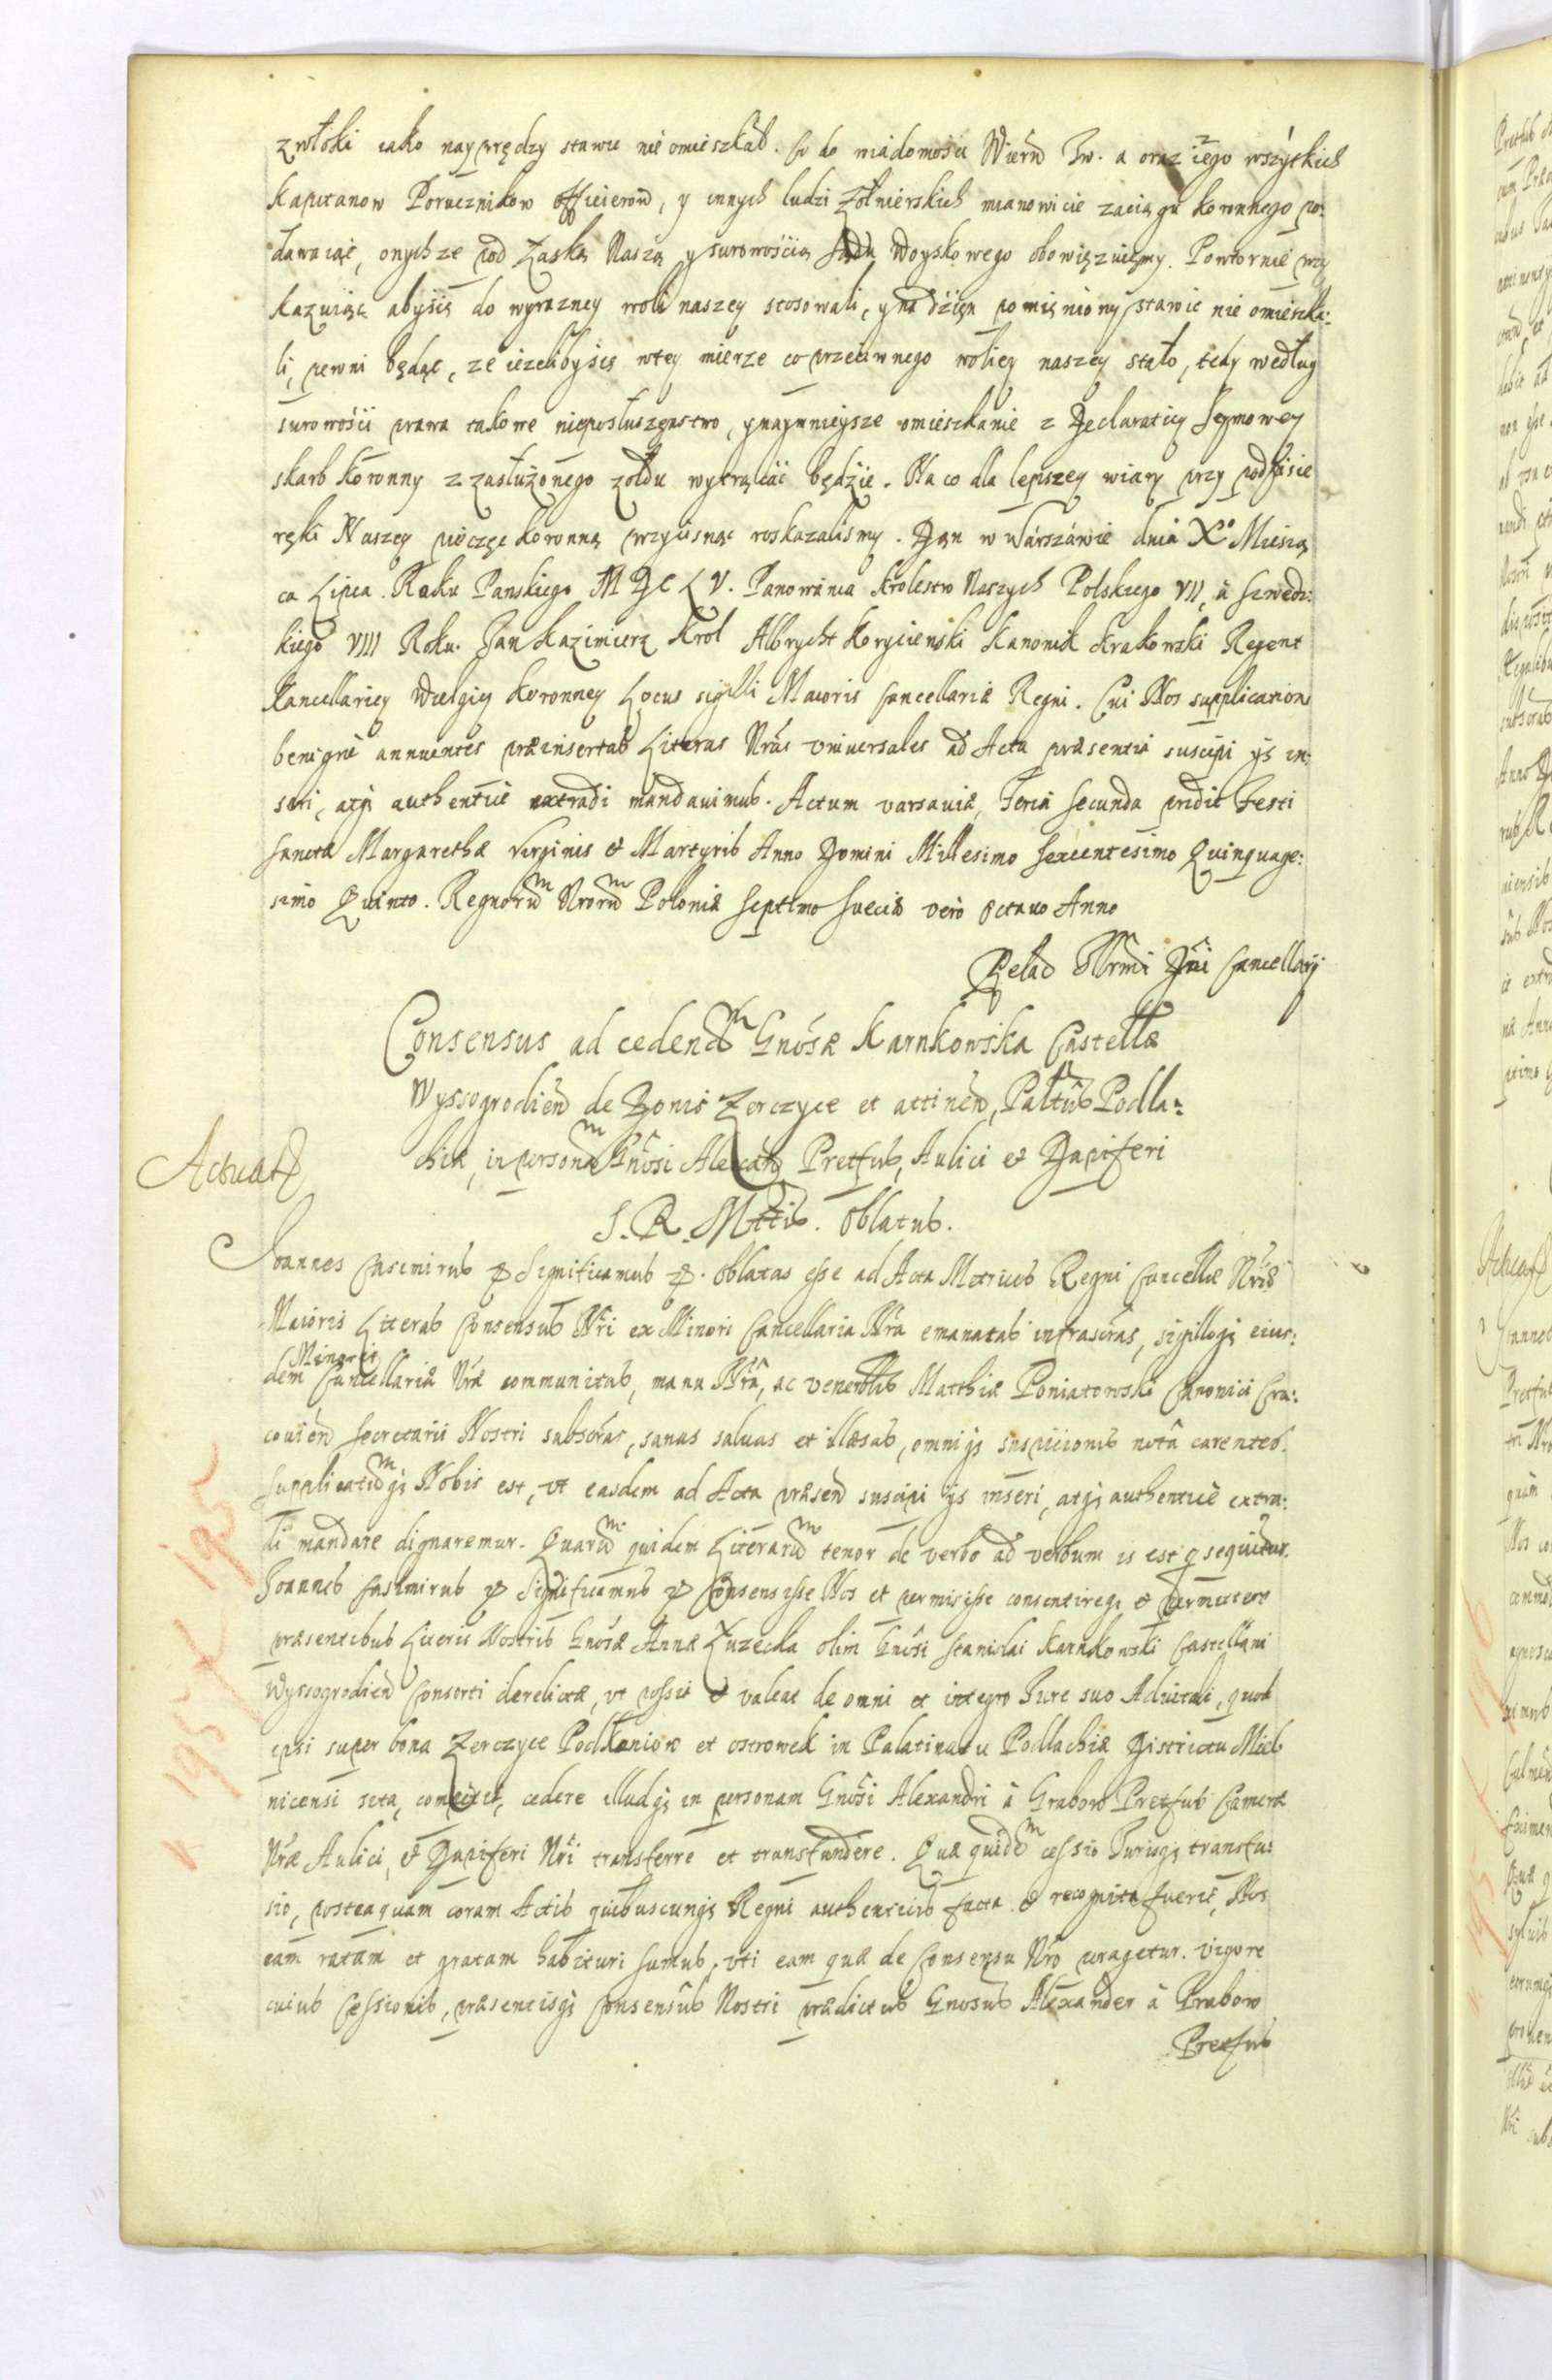 zwłoki iako nayprędzy stawic nie omieszkał. Co do wiadomosci Wiern Tw. a oraz iego wszystkich
Kapitanow Porucznikow officierow, y innych ludzi Żołnierskich mianowicie zaciągu koronnego po:
dawaiąc, onychze pod Łaską Naszą y surowością Sądu Woyskowego obowięzuięmy. Powtornie przy
kazuiąc aby się do wyrazney woli naszey stosowali, y na dzien pomięniony stawic nie omieszka:
li, pewni będąc, ze iezeliby się wtey mierze co przeciwnego woliey naszey stało, tedy według
surowości prawa takowe nieposłuszęnstwo, y naymnieysze omieszkanie z Declaratiey Seymowey
skarb Koronny z zasłużonego żołdu wytrącać będzie. Na co dla lepszey wiary przy podpisie
ręki Naszey pieczęc koronną przycisnąc roskazalismy. Dan w Warszawie dnia X° Miesią
ca Lipca Roku Panskiego MDCLV. Panowania Krolestw Naszych Polskiego VII, a Szwedz:
kiego VIII Roku. Jan Kazimierz Krol Albrycht Korycienski Kanonik Krakowski Regent
Kancellariey Wielgiey Koronney Locus sigilli Maioris Cancellariæ Regni. Cui Nos supplicationi
benignè annuentes præinsertas Literas Nrãs vniversales ad Acta præsentia suscipi ys in:
seri, atq; authenticè extradi mandauimus. Actum varsaviæ, Feria Secunda pridie Festi
Sanctæ Margarethæ Virginis et Martyris Anno Domini Millesimo Sexcentesimo Quinquage:
simo Quinto. Regnorum Nrorum Poloniæ Septimo Sueciæ verò Octauo Anno
Relat Illrmi Dni Cancellarij
Consensus ad cedend Gnosæ Karnkowska Castellæ
Wyssogrodien de Bonis Zerczyce et attinen, Paltus Podla:
chiæ, in personam Gnosi Alexandr Pretfus, Aulici et Dapiferi
S. R. Mttis. oblatus.
Actuat
Joannes Casimirus & Significamus &. oblatas esse ad Acta Metrices Regni Cancellæ Nrãe
Maioris Literas Consensus Nri ex Minori Cancellaria Nra emanatas infrascras, sigilloq; eius:
Minoris
dem Cancellariæ Nræ communitas, manu Nra, ac venerblis Matthiæ Poniatowski Canonici Cra:
couien Secretarii Nostri subscras, sanas saluas et illæsas, omniq; suspicionis notâ carentes.
Supplicatumq; Nobis est, vt easdem ad Acta præsen suscipi ys inseri, atq; authenticè extra:
di mandare dignaremur. Quarum quidem Literarum tenor de verbo ad verbum is est q sequitur.
Joannes Casimirus & Significamus & Consensisse Nos et permisisse consentireq; et permittere
præsentibus Literis Nostris Gnosæ Annæ Łuzecka olim Gnosi Stanislai Karnkowski Castellani
Wyssogrodien Consorti derelictæ, vt possit et valeat de omni et integro Jure suo Aduitali, quod
ipsi super bona Zerczyce Podkaniow et ostrowek in Palatinatu Podlachiæ Districtu Miel
nicensi sita, competit, cedere illudq; in personam Gnosi Alexandri à Grabow Pretfus Cameræ
Nræ Aulici, et Dapiferi Nri transferre et transfundere. Quæ quidem cessio Jurisq; transfu:
sio, posteaquam coram Actis quibuscunq; Regni authenticis facta et recognita fuerit, Nos
eam ratam et gratam habituri sumus, vti eam quæ de Consensu Nro peragetur. vigore
cuius Cessionis, præsentisq; Consensûs Nostri prædictus Gnosus Alexander à Grabow
Pretfus